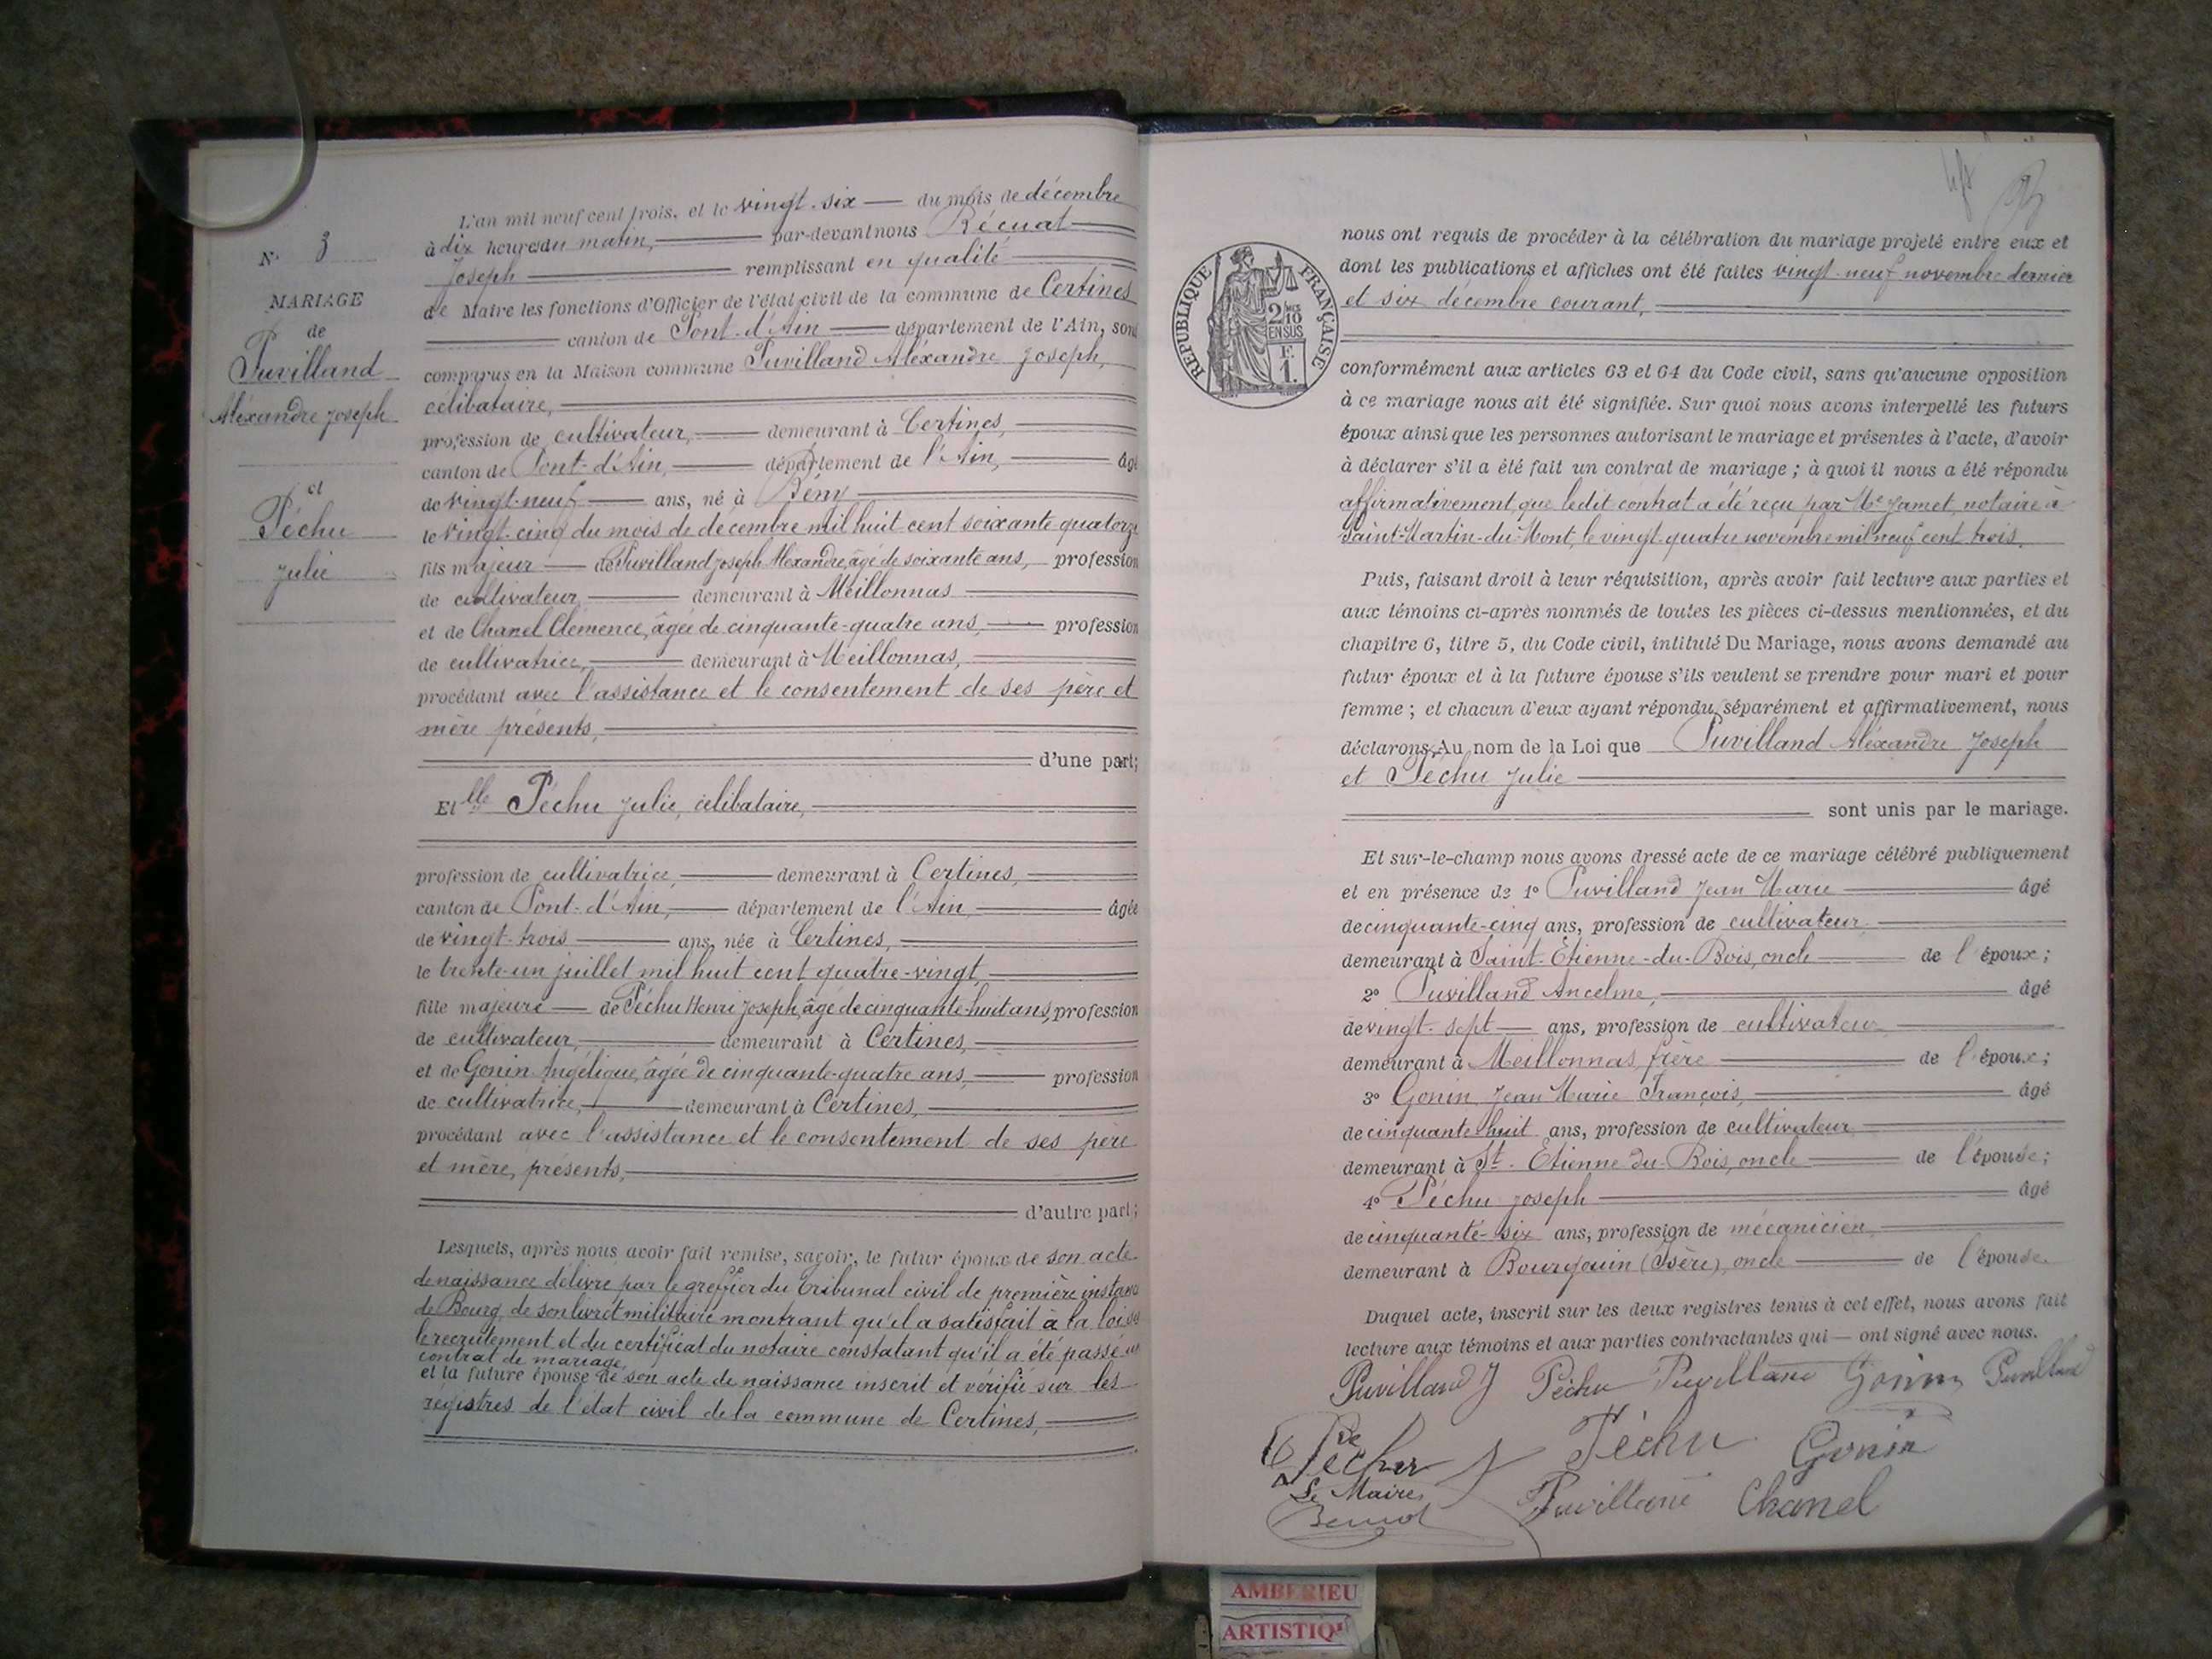 N° 3
MARIAGE
de
Puvilland
Aléxandre Joseph
et
Péchu
Julie
L'an mil neuf cent trois, et le vingt-six du mois de décembre
à dix heures du matin, par-devant nous Récuat
Joseph remplissant en qualité
de Maire les fonctions d'Officier de l'état civil de la commune de Certines
canton de Pont-d'Ain département de l'Ain, sont
comparus en la Maison commune Puvilland Aléxandre Joseph,
célibataire,
profession de cultivateur, demeurant à Certines,
canton de Pont-d'Ain, département de l'Ain, âgé
de vingt-neuf ans, né à Bény
le vingt-cinq du mois de décembre mil huit cent soixante quatorze
fils majeur de Puvilland Joseph Alexandre âgé de soixante ans, profession
de cultivateur, demeurant à Meillonnas
et de Chanel Clémence, âgée de cinquante-quatre ans, profession
de cultivatrice, demeurant à Meillonnas,
procédant avec l'assistance et le consentement de ses père et
mère présents,
d'une part;
Et lle Péchu Julie, célibataire,
profession de cultivatrice, demeurant à Certines,
canton de Pont-d'Ain, département de l'Ain, âgée
de vingt-trois ans, née à Certines,
le trente-un juillet mil huit cent quatre-vingt,
fille majeure de Péchu Henri Joseph, âgé de cinquante-huit ans, profession
de cultivateur, demeurant à Certines,
et de Gonin Angélique, âgée de cinquante-quatre ans, profession
de cultivatrice, demeurant à Certines,
procédant avec l'assistance et le consentement de ses père
et mère, présents,
d'autre part;
Lesquels, après nous avoir fait remise, saçoir, le futur époux de son acte
de naissance délivré par le greffier du Tribunal civil de première instance
de Bourg, de son livret militaire montrant qu'il a satisfait à la loi sur
le recrutement et du certificat du notaire constatant qu'il a été passé un
contrat de mariage,
et la future épouse de son acte de naissance inscrit et vérifié sur les
régistres de l'état civil de la commune de Certines,
RÉPUBLIQUE FRANÇAISE
2/10
EN SUS
F.
1.
nous ont requis de procéder à la célébration du mariage projeté entre eux et
dont les publications et affiches ont été faites vingt-neuf novembre dernier
et six décembre courant,
conformément aux articles 63 et 64 du Code civil, sans qu'aucune opposition
à ce mariage nous ait été signifiée. Sur quoi nous avons interpellé les futurs
époux ainsi que les personnes autorisant le mariage et présentes à l'acte, d'avoir
à déclarer s'il a été fait un contrat de mariage ; à quoi il nous a été répondu
affirmativement, que ledit contrat a été reçu par Me Jamet, notaire à
Saint-Martin-du-Mont, le vingt-quatre novembre mil neuf cent trois.
Puis, faisant droit à leur réquisition, après avoir fait lecture aux parties et
aux témoins ci-après nommés de toutes les pièces ci-dessus mentionnées, et du
chapitre 6, titre 5, du Code civil, intitulé Du Mariage, nous avons demandé au
futur époux et à la future épouse s'ils veulent se prendre pour mari et pour
femme ; et chacun d'eux ayant répondu séparément et affirmativement, nous
déclarons, Au nom de la Loi que Puvilland Aléxandre Joseph
et Péchu Julie
sont unis par le mariage.
Et sur-le-champ nous avons dressé acte de ce mariage célébré publiquement
et en présence de 1° Puvilland Jean Marie âgé
de cinquante-cinq ans, profession de cultivateur
demeurant à Saint-Etienne-du-Bois, oncle de l'époux ;
2° Puvilland Ancelme, âgé
de vingt-sept ans, profession de cultivateur
demeurant à Meillonnas, frère de l'époux ;
3° Gonin Jean Marie François, âgé
de cinquante huit ans, profession de cultivateur
demeurant à St-Etienne-du-Bois, oncle de l'épouse ;
4° Péchu Joseph âgé
de cinquante-six ans, profession de mécanicien
demeurant à Bourgouin (Isère), oncle de l'épouse.
Duquel acte, inscrit sur les deux registres tenus à cet effet, nous avons fait
lecture aux témoins et aux parties contractantes qui ont signé avec nous.
Puvilland J Péchu Puvilland Gonin Puvilland
Péchu Péchu Gonin
Le Maire,
Puvilland Chanel
AMBERIEU
ARTISTIQU